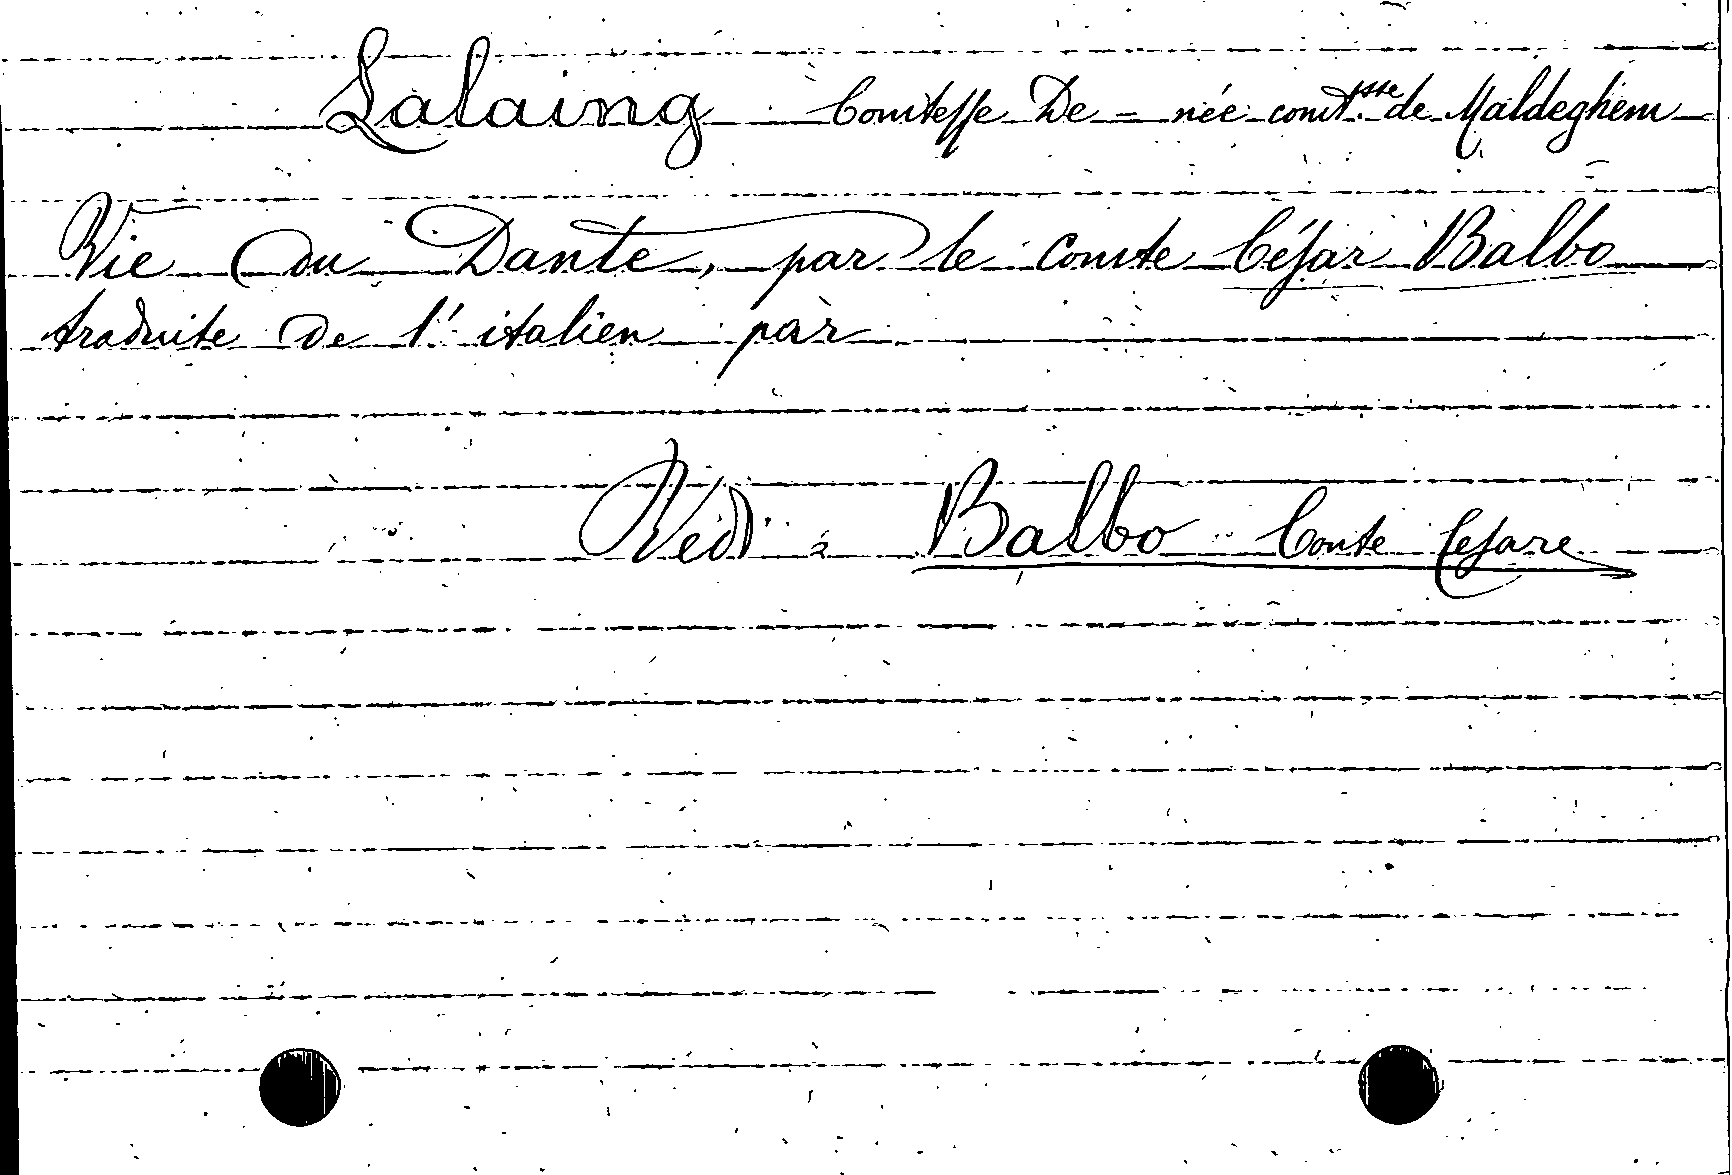 Lalaing Comtesse De = née comt.sse de Maldeghem
Vie du Dante, par le comte César Balbo
traduite de l'italien par
Vedi : Balbo Conte Cesare